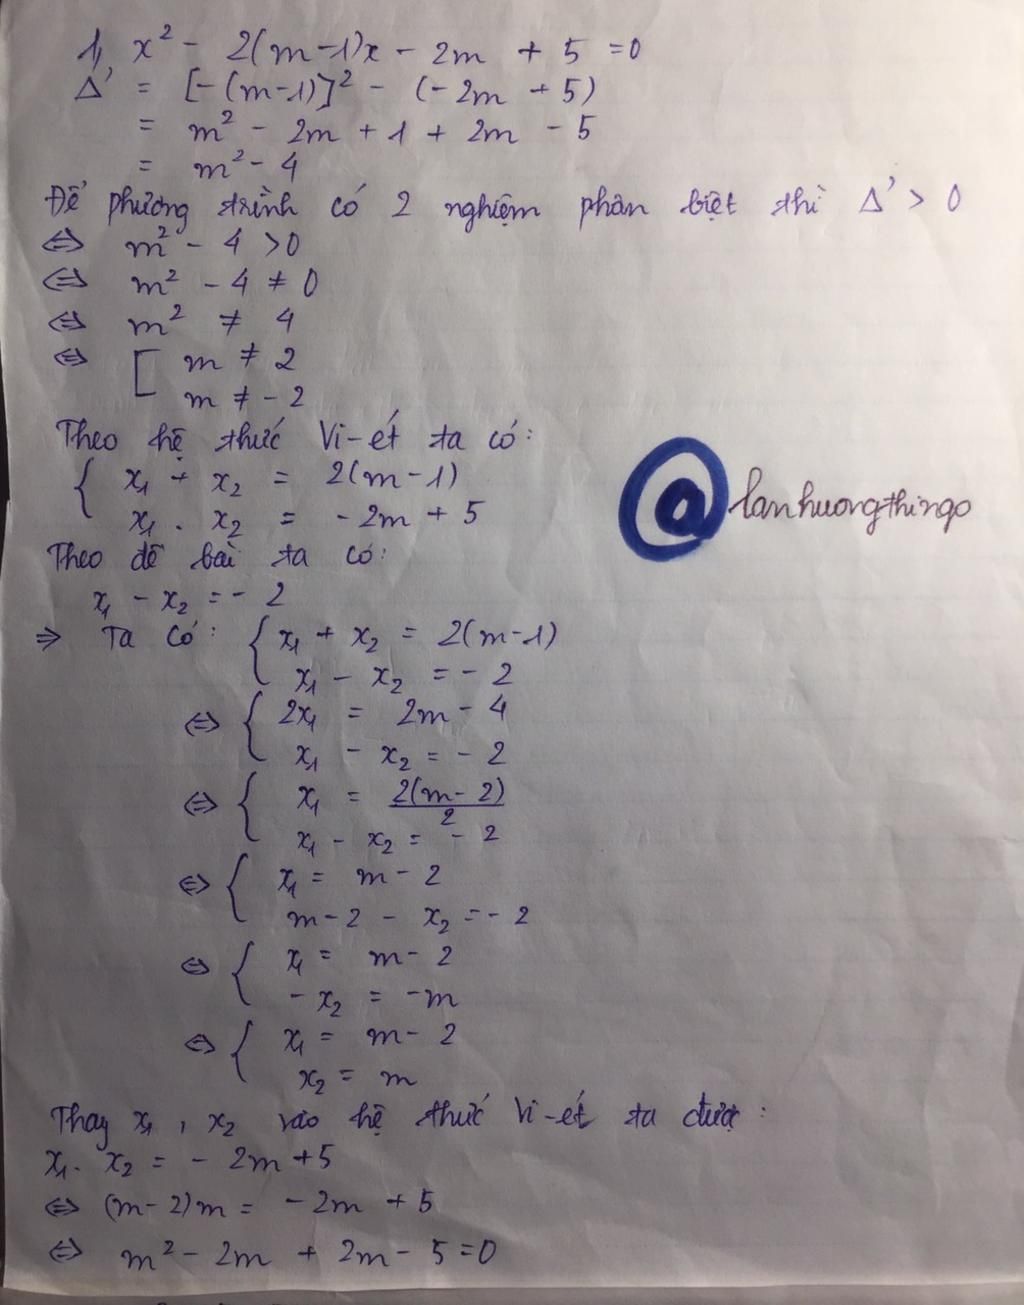 1, x² - 2(m-1)x - 2m + 5 = 0
Δ' = [-(m-1)]² - (-2m + 5)
= m² - 2m + 1 + 2m - 5
= m² - 4
Để phương trình có 2 nghiệm phân biệt thì Δ' > 0
⇔ m² - 4 > 0
⇔ m² - 4 ≠ 0
⇔ m² ≠ 4
⇔ [ m ≠ 2
m ≠ - 2
Theo hệ thức Vi-ét ta có:
{ x₁ + x₂ = 2(m-1)
x₁ . x₂ = - 2m + 5
@lanhuongthingo
Theo đề bài ta có:
x₁ - x₂ = - 2
⇒ Ta có: { x₁ + x₂ = 2(m-1)
x₁ - x₂ = - 2
⇔ { 2x₁ = 2m - 4
x₁ - x₂ = - 2
⇔ { x₁ = 2(m-2)/2
x₁ - x₂ = - 2
⇔ { x₁ = m - 2
m - 2 - x₂ = - 2
⇔ { x₁ = m - 2
- x₂ = -m
⇔ { x₁ = m - 2
x₂ = m
Thay x₁, x₂ vào hệ thức Vi-ét ta được:
x₁. x₂ = - 2m + 5
⇔ (m-2)m = - 2m + 5
⇔ m² - 2m + 2m - 5 = 0